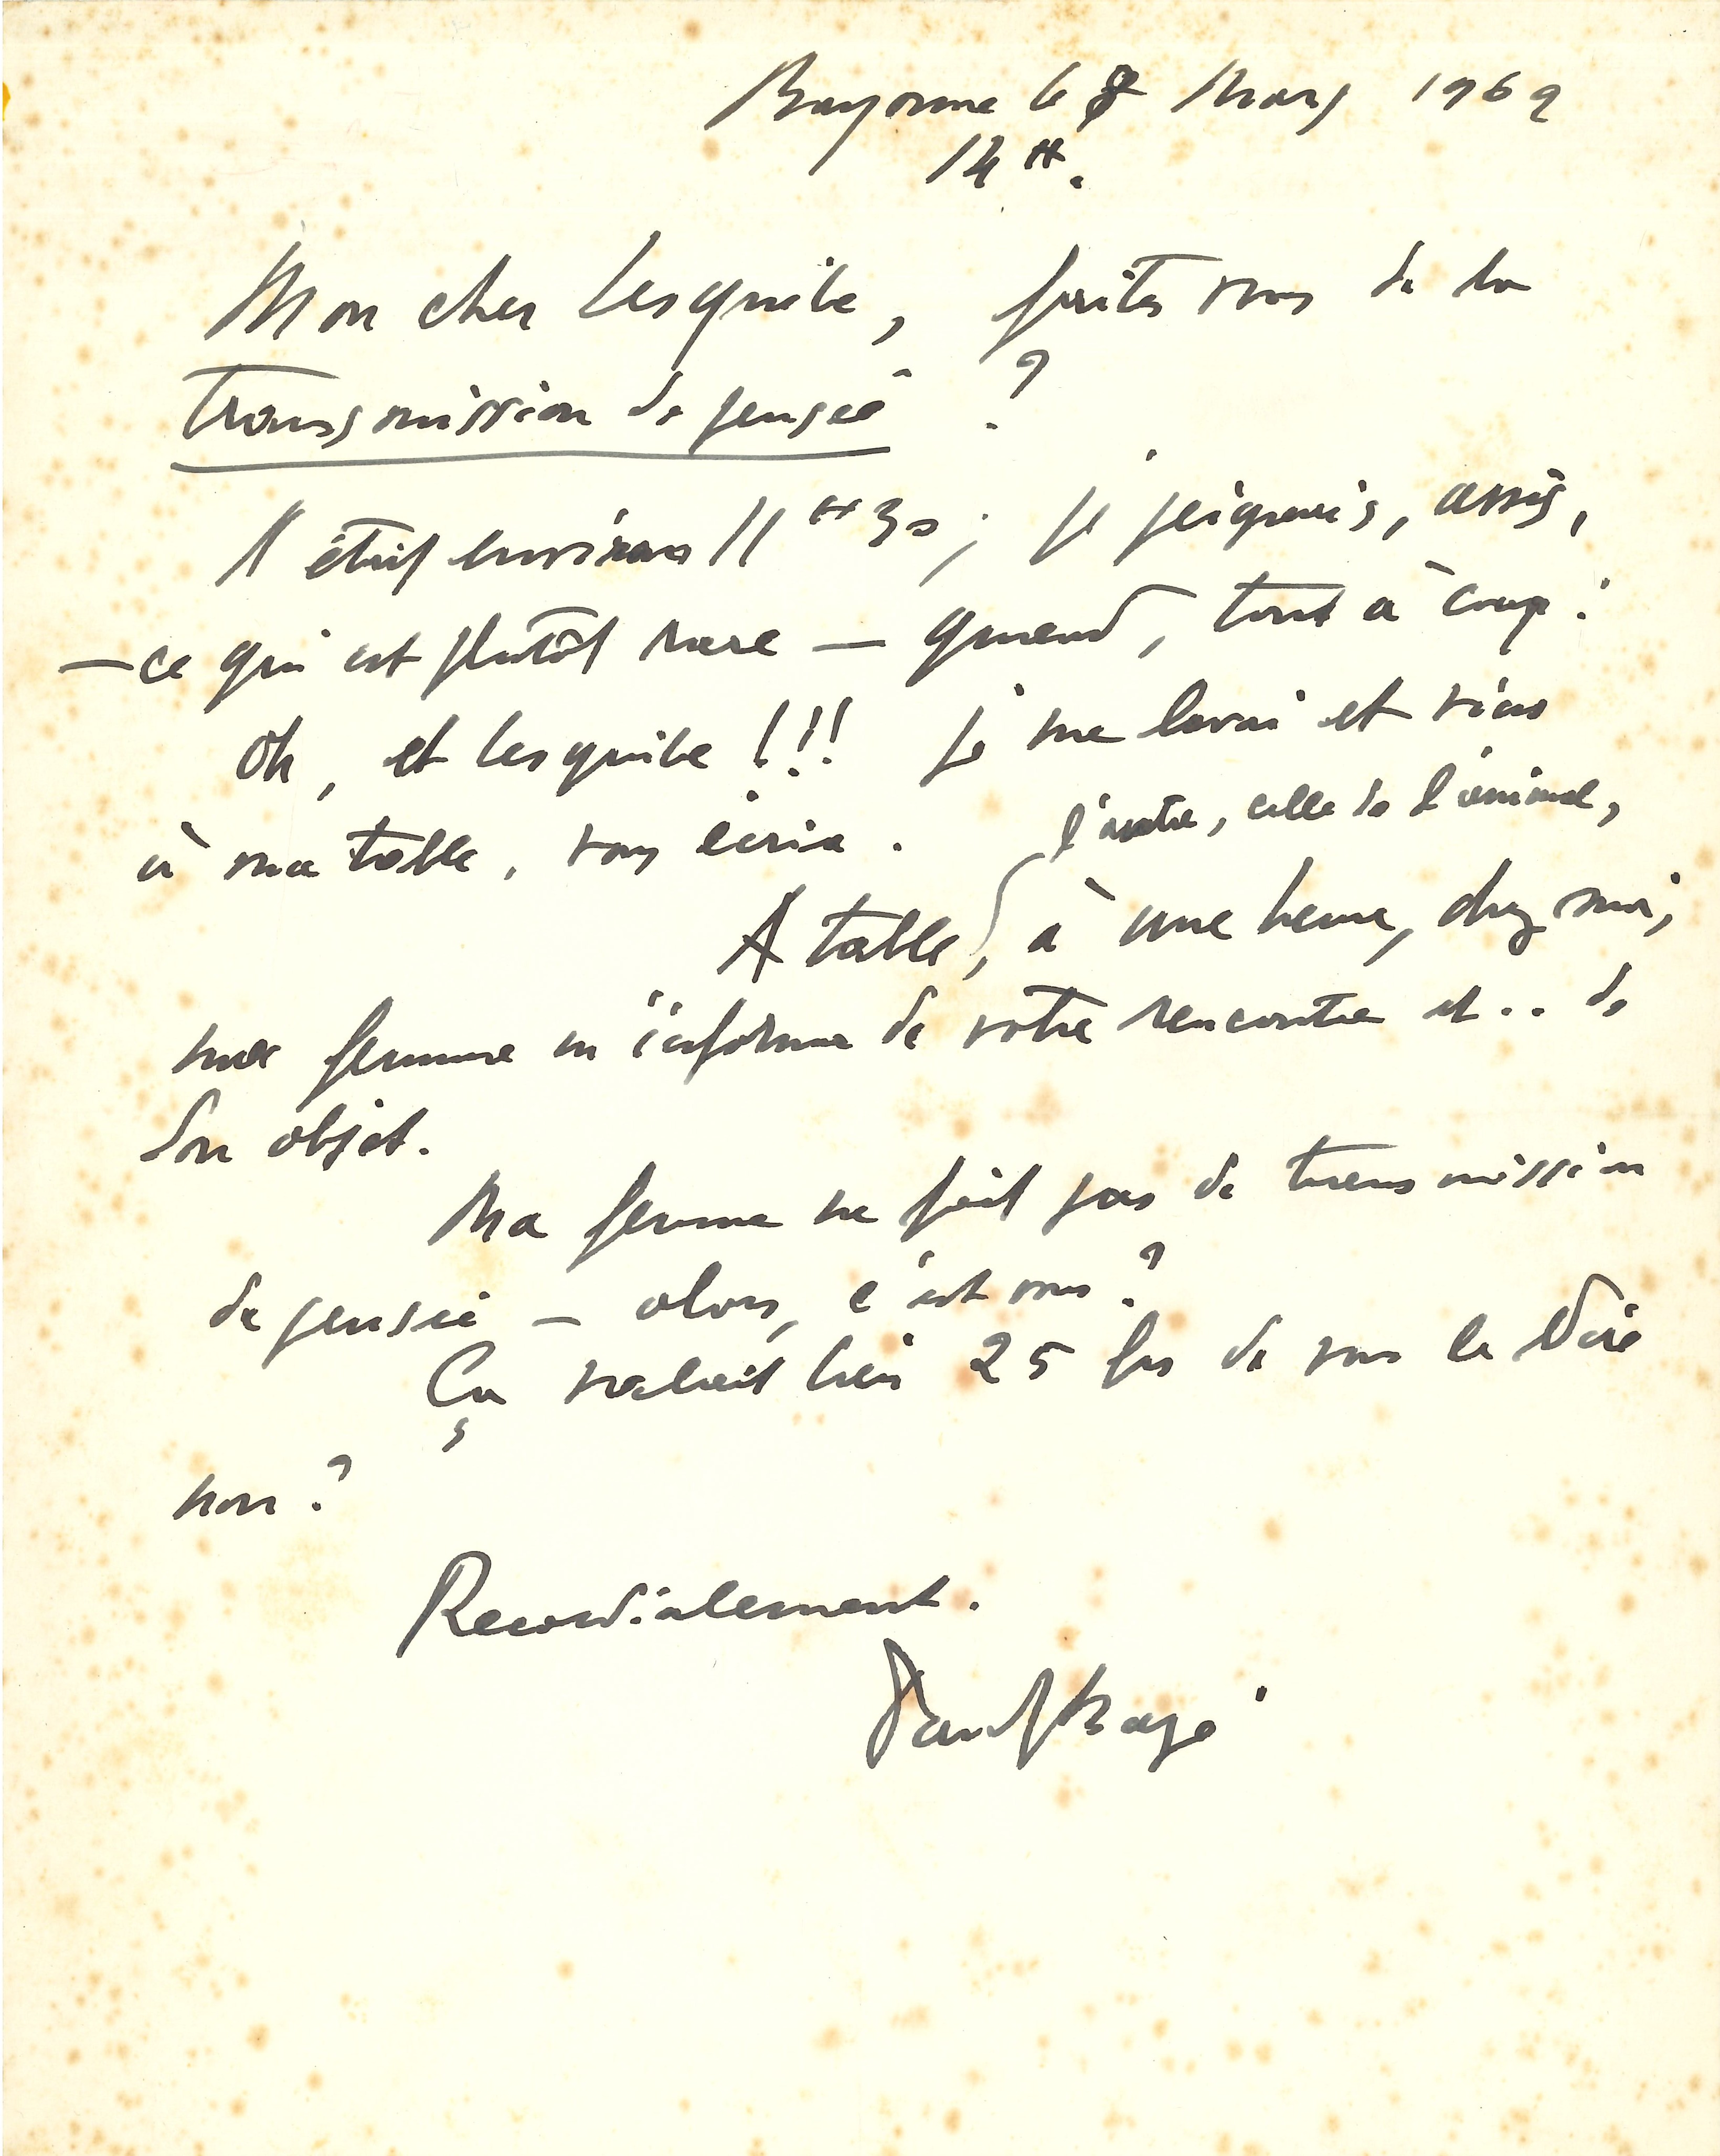 Bayonne le 8 Mars 1969
14 H.
Mon cher Lesquibe, faites vous de la
transmission de pensée ?
Il était environ 11 H 30 ; je peignais, assis,
— ce qui est plutôt rare — quand, tout à coup :
Oh, et Lesquibe !!! je me levai et vins
à ma table, vous écrire.
l'autre, celle de l'animal,
A table, à une heure, chez moi,
ma femme m'informe de votre rencontre et .. de
son objet.
Ma femme ne fait pas de transmission
de pensée — alors, c'est vous ?
Ça valait bien 25 frs de vous le dire
non ?
Recordialement.